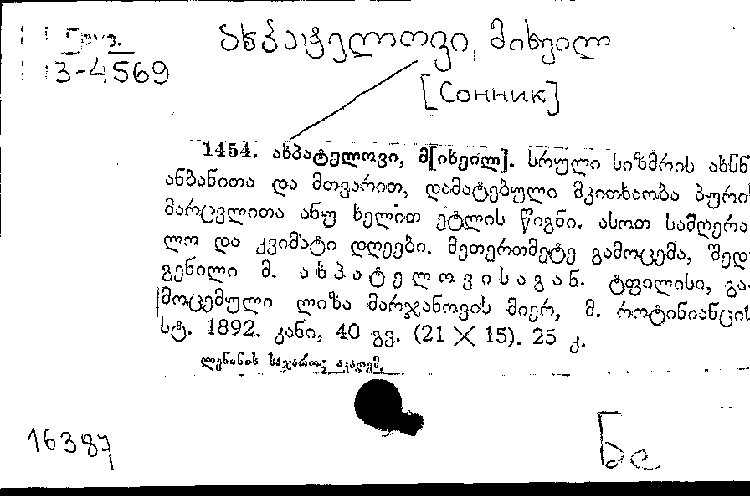 3-4569
ახპატელოვი, მიხეილ
[Сонник]
1454. ახპატელოვი, მ[იხეილ]. სრული სიზმრის ახსნ
ანბანითა და მთვარით, დამატებული მკითხაობა პური
მარცვლითა ანუ ხელით ეტლის წიგნი. ასოთ სამღერა
ლო და კვიმატი დღეები. მეთერთმეტე გამოცემა, შედ
გენილი მ. ახპატელოვისაგან. ტფილისი, გა
მოცემული ლიზა მარჯანოვის მიერ, მ. როტინიანცის
სტ. 1892. კანი, 40 გვ. (21 × 15). 25 კ.
16387